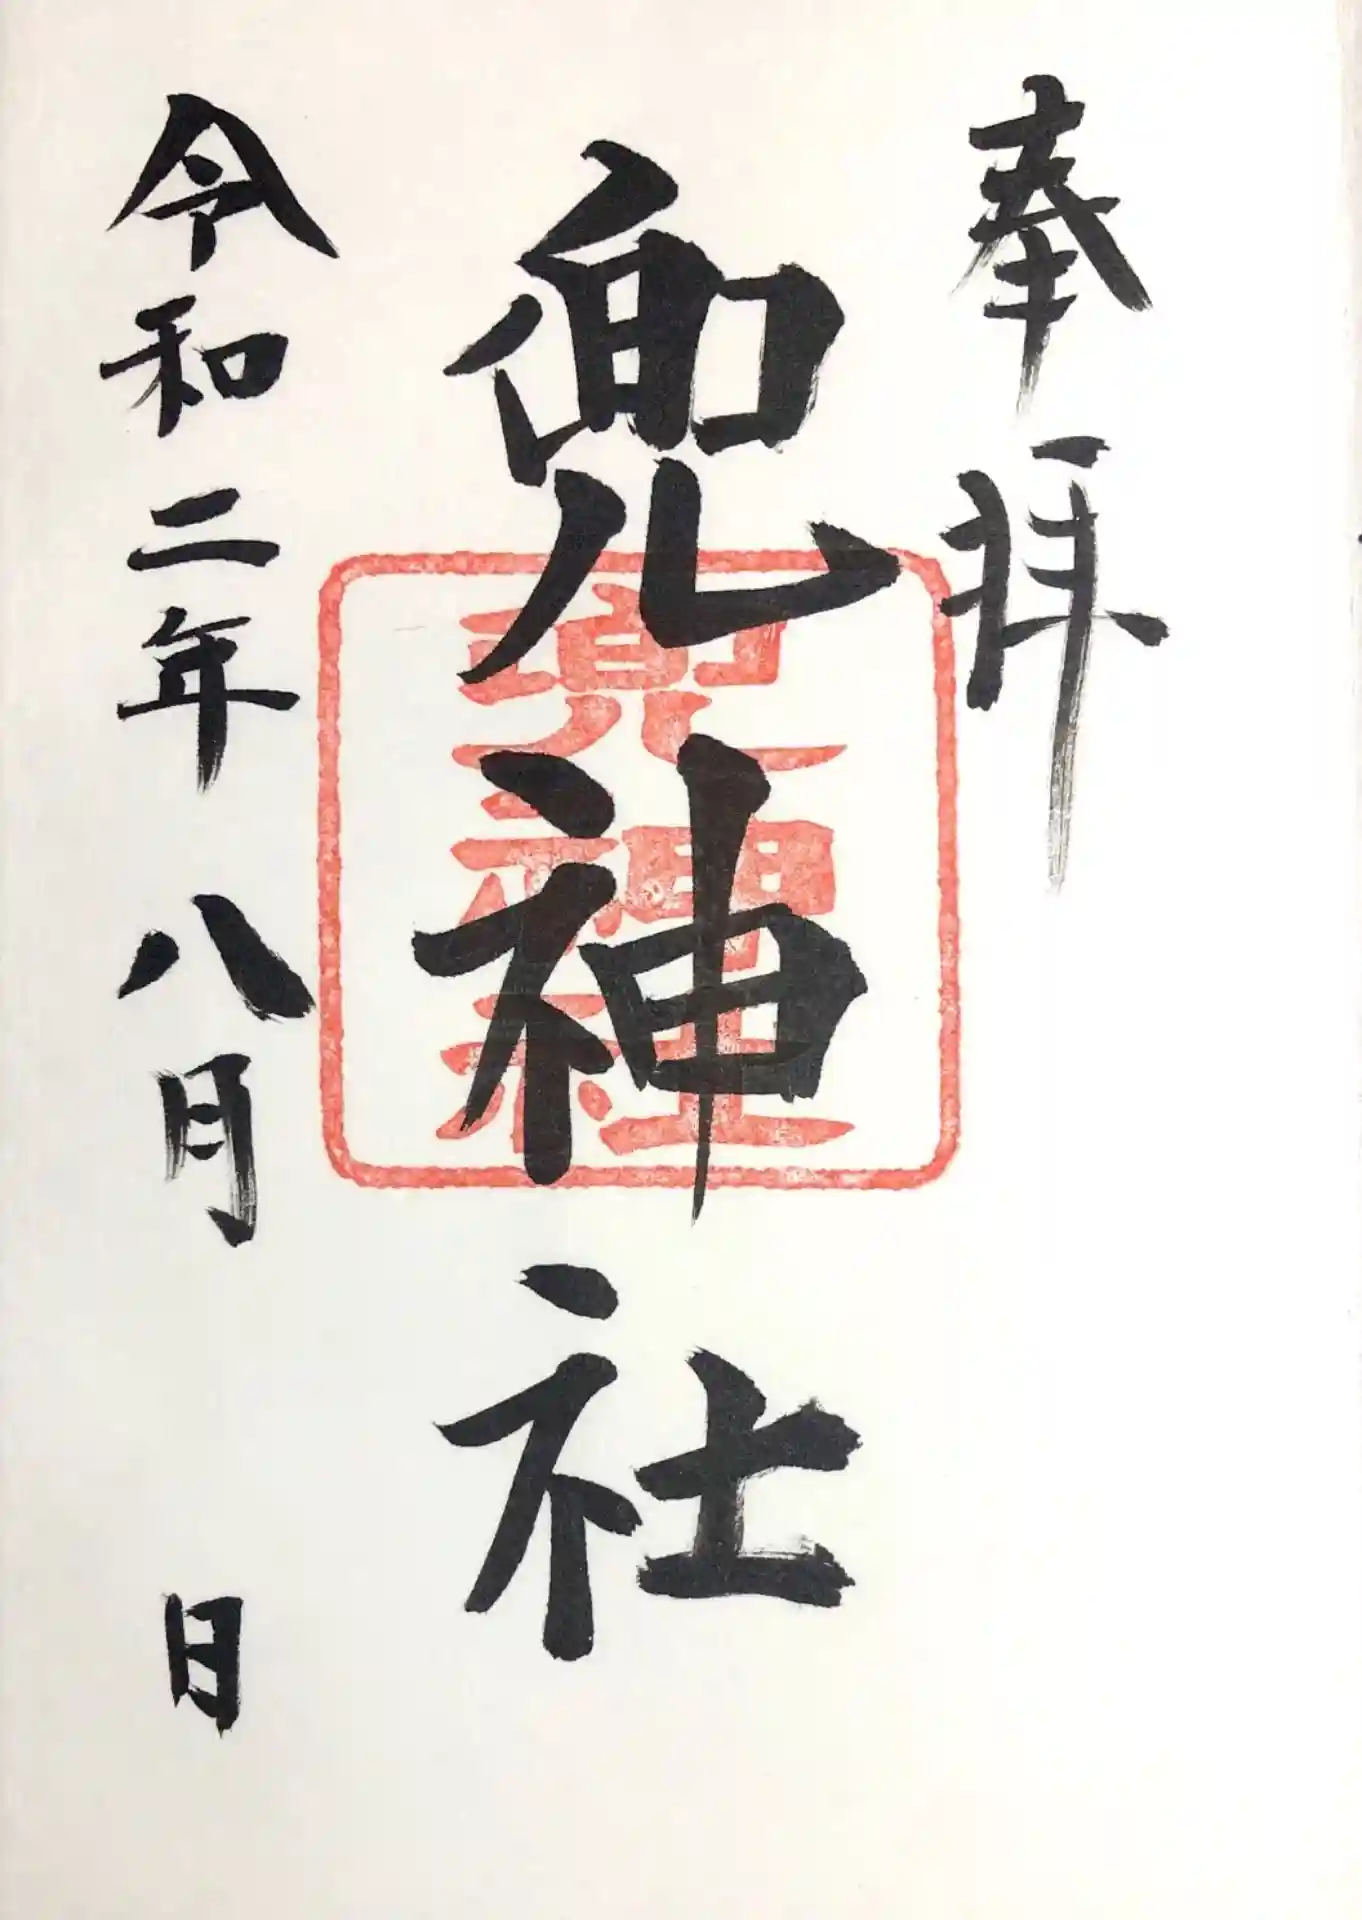 奉拝
兜神社
兜神社
令和二年八月 日